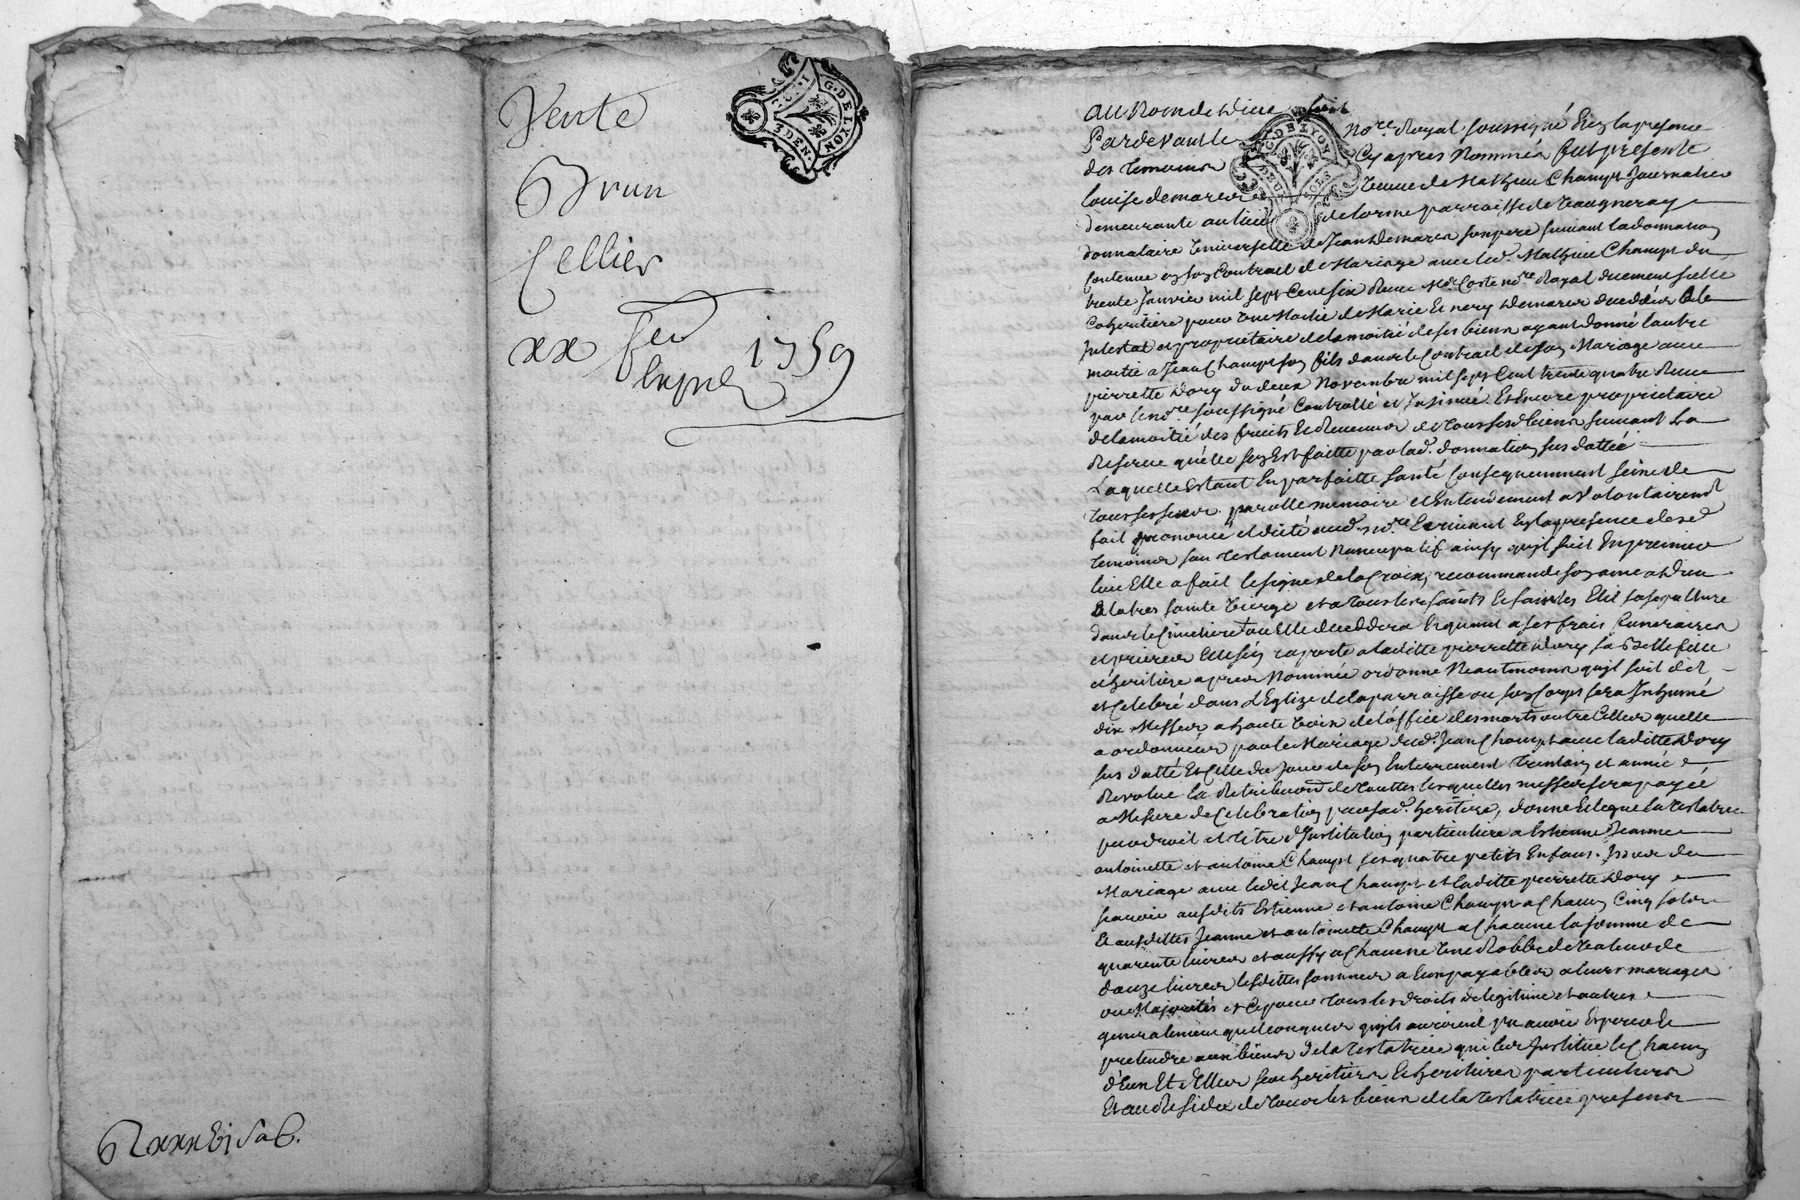 Vente
Brun
Cellier
xx fev
1759
G. DE LYON
3 DEN.
Au Nom de Dieu soit
Pardevant le No.re Royal soussigné En la presence
des temoins Cy apres Nommés fut presente
Louise demares veuve de Mathieu Champt Journalier
demeurante au lieu delorme parroisse de Vaugneray
donnataire universelle de Jean Demares son pere suivant la donnation
contenue en son Contrait de Mariage avec led. Mathieu Champt du
trente Janvier mil sept Cent six Receu M.e Coste no.re Royal duement
Coheritiere pour une Moitié de Marie Demares decedée
Intestat et proprietaire de la moitié de ses biens ayant donné l'autre
moitié a Jean Champt son fils dans le Contrait de son Mariage avec
pierrette Dory du deux Novembre mil sept Cent trente quatre Receu
par le no.re soussigné Controllé et Insinué. Et Encore proprietaire
de la moitié des fruits et Revenus de tous ses biens suivant La
Reserve qu'elle s'en Est faitte par lad. donnation sus dattée
Laquelle Estant En parfaitte santé Consequemment seine de
tous ses sens parolle memoire et Entendement a Volontairem.t
fait prononcé et dicté aud. no.re Ecrivant En la presence desd.
temoins son testament Nuncupatif ainsy qu'il suit En premier
lieu Elle a fait le signe de la Croix, recommande son ame a Dieu
a la tres sainte Vierge et a tous les saints et saintes Elit sa sepulture
dans le Cimetiere ou Elle deceddera Et quant a ses frais funeraires
et prieres Elle s'en raporte a laditte pierrette Dory sa Belle fille
et heritiere apres Nommée ordonne Neantmoins qu'il soit dit
et Celebré dans L'Eglize de la parroisse ou son Corps sera Inhumé
dix Messes a haute voix de l'office des morts outre Celles quelle
a ordonnées par le Mariage dud. Jean Champt avec laditte Dory
sus datté Et Celle du Jour de son Enterrement et année
Revolue La Retribution de touttes lesquelles messes sera payée
a Mesure de Celebration par sad. heritiere, donne Et legue la testatrice
par droit et titre d'Institution particuliere a Estienne Jeanne
antoinette et antoine Champt ses quatre petits Enfans Issus du
Mariage avec ledit Jean Champt et laditte pierrette Dory
sçavoir ausdits Estienne et antoine Champt a Chacun Cinq sols
Et ausdittes Jeanne et antoinette Champt a Chacune la somme de
quarente livres et aussy a Chacune une Robbe de Valeur de
douze livres lesdittes sommes a Eux payables a leurs mariages
ou Majorités et Ce pour tous les droits de legitime et autres
generalement quelconques qu'ils auroient pu avoir Esperer
pretendre aux biens de la testatrice qui les Institue et Chacun
d'Eux Et d'Elles ses heritiers Et heritieres particuliers
Et au Residu de tous les biens de la testatrice presens
G. DE LYON
DEUX SOLS